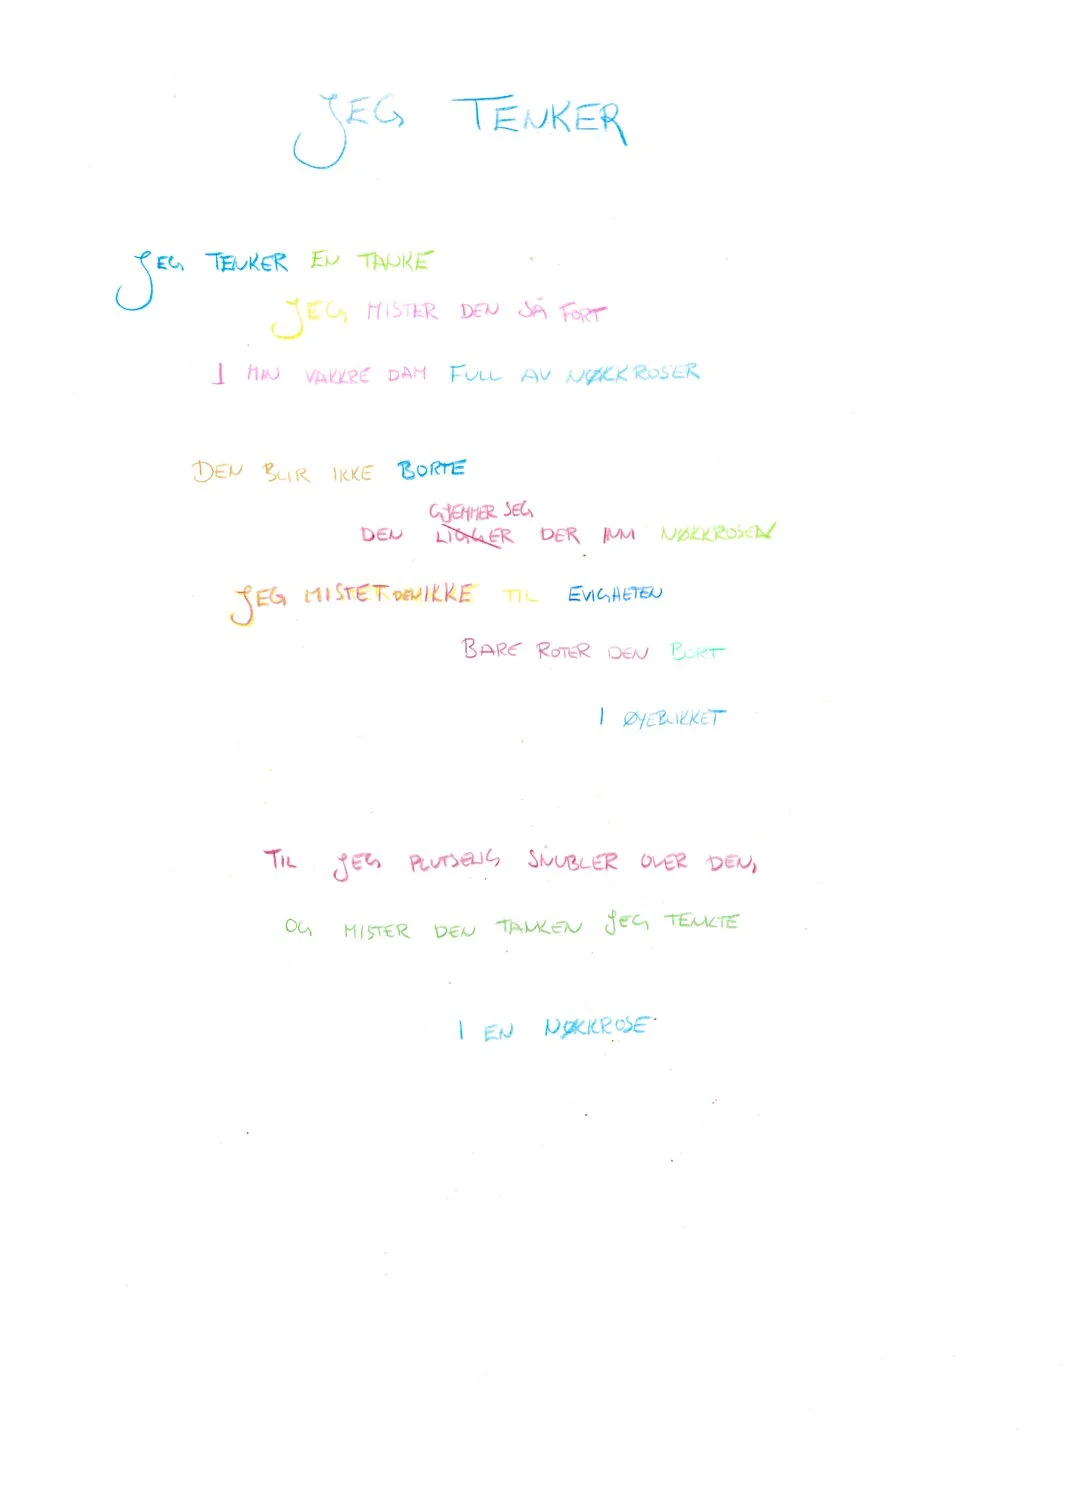 JEG TENKER
JEG TENKER EN TANKE
JEG MISTER DEN SÅ FORT
I MIN VAKKRE DAM FULL AV NØKKROSER
DEN BLIR IKKE BORTE
GJEMMER SEG
DEN LIGGER DER INNI NØKKROSEN
JEG MISTET DEN IKKE TIL EVIGHETEN
BARE ROTER DEN BORT
I ØYEBLIKKET
TIL JEG PLUTSELIG SNUBLER OVER DEN,
OG MISTER DEN TANKEN JEG TENKTE
I EN NØKKROSE